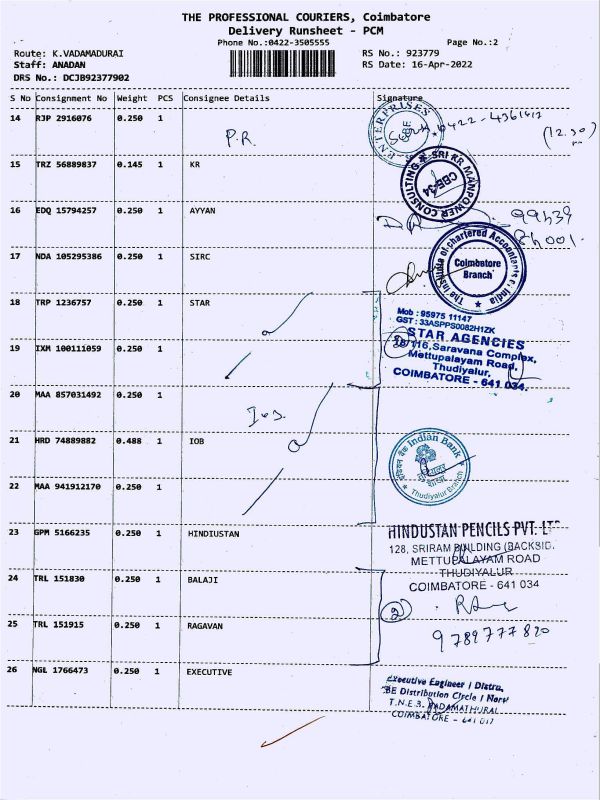 THE PROFESSIONAL COURIERS, Coimbatore
Delivery Runsheet - PCM
Phone No.:0422-3505555
Page No.:2
Route: K.VADAMADURAI
RS No.: 923779
Staff: ANADAN
RS Date: 16-Apr-2022
DRS No.: DCJB92377902
S No Consignment No Weight PCS Consignee Details Signature
14 RJP 2916076 0.250 1 P.R.
ENTERPRISES
0422-4361612
(12.30)
15 TRZ 56889837 0.145 1 KR
SRI KR MANPOWER CONSULTING
CBE-34
16 EDQ 15794257 0.250 1 AYYAN
17 NDA 105295386 0.250 1 SIRC
The Institute of Chartered Accountants of India
Coimbatore
Branch
18 TRP 1236757 0.250 1 STAR
Mob : 95975 11147
GST : 33ASPPS0082H1ZK
STAR AGENCIES
Saravana Complex,
Mettupalayam Road,
Thudiyalur,
COIMBATORE - 641 034.
19 IXM 100111059 0.250 1
20 MAA 857031492 0.250 1
21 HRD 74889882 0.488 1 IOB
इंडियन बैंक Indian Bank
Thudiyalur Branch
22 MAA 941912170 0.250 1
23 GPM 5166235 0.250 1 HINDIUSTAN
HINDUSTAN PENCILS PVT. LT
128, SRIRAM BUILDING (BACKSID.
METTUPALAYAM ROAD
THUDIYALUR
COIMBATORE - 641 034
24 TRL 151830 0.250 1 BALAJI
2
25 TRL 151915 0.250 1 RAGAVAN
9789777820
26 NGL 1766473 0.250 1 EXECUTIVE
Executive Engineer / Distrn,
BE Distribution Circle / Nort
T.N.E.B. VADAMATHURAI
COIMBATORE - 641 017